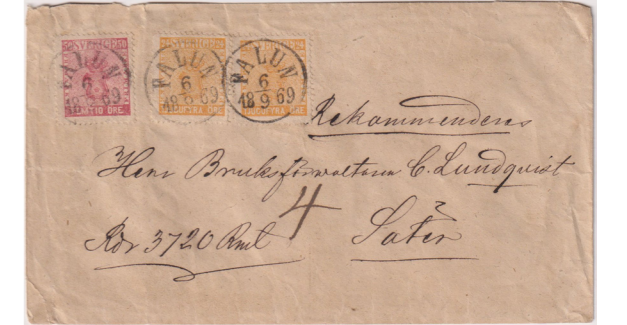 FALUN
6
18 9 69
FALUN
6
18 9 69
FALUN
6
18 9 69
ÖRE
Rekommenderas
Herr Bruksförvaltaren C. Lundqvist
4
Säter
3720 Rmt